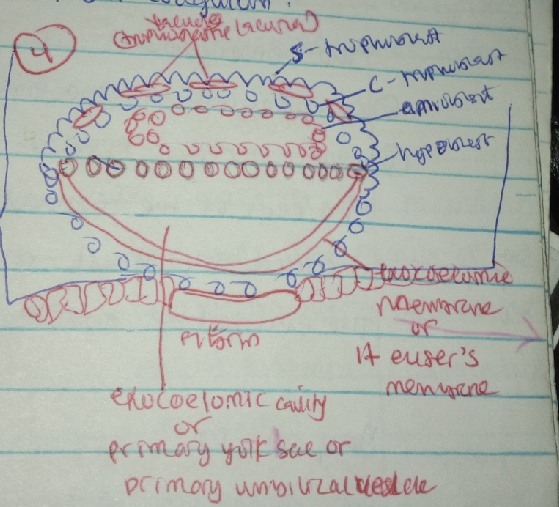 4
S-trophoblast
C-trophoblast
epiblast
hypoblast
exocoelomic
membrane
or
Heuser's
membrane
fibrin
exocoelomic cavity
or
primary yolk sac or
primary umbilical vesicle